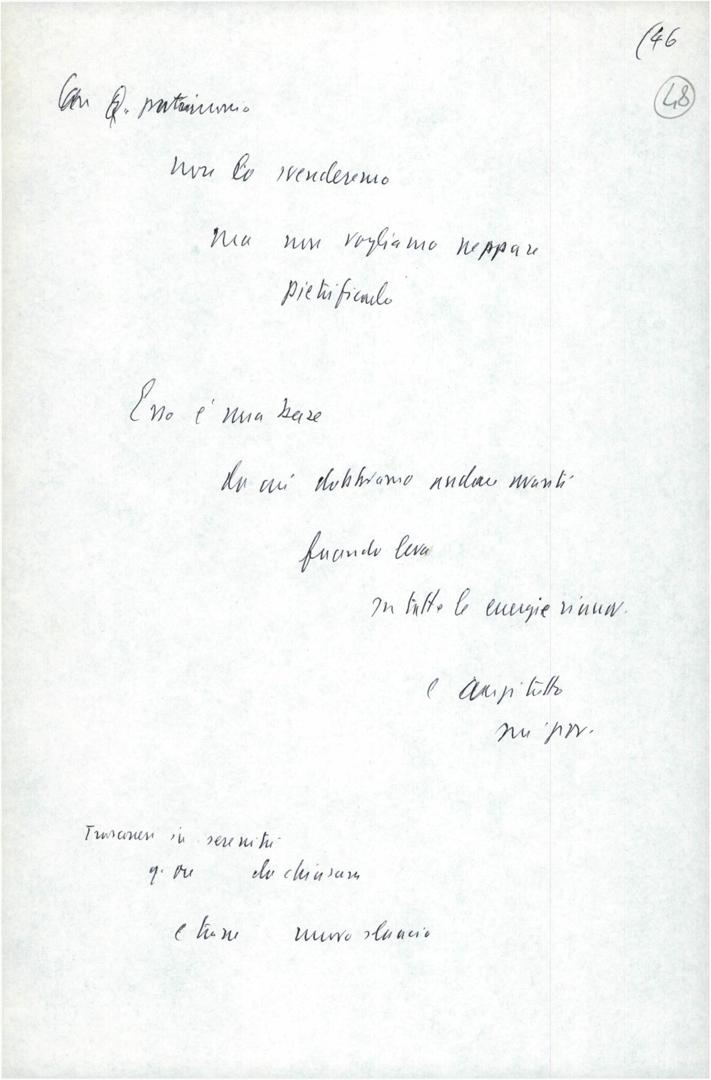 (46
48
Con Q. patrimonio
non lo svenderemo
ma non vogliamo neppure
pietrificarlo
Esso è una base
da cui dobbiamo andare avanti
facendo leva
su tutte le energie rinnov.
e anzitutto
sui giov.
Trascorrere in serenità
q. ore da chiusura
e trarne nuovo slancio